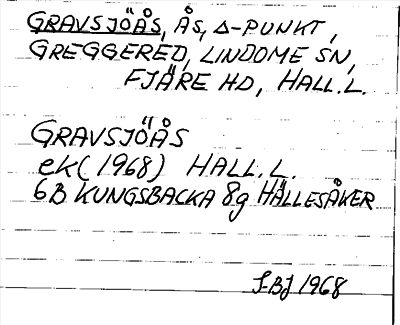 GRAVSJÖÅS, ÅS, Δ-PUNKT,
GREGGERED, LINDOME SN,
FJÄRE HD, HALL.L.
GRAVSJÖÅS
ek (1968) HALL.L.
6B KUNGSBACKA 8g HÄLLESÅKER
S-BJ 1968